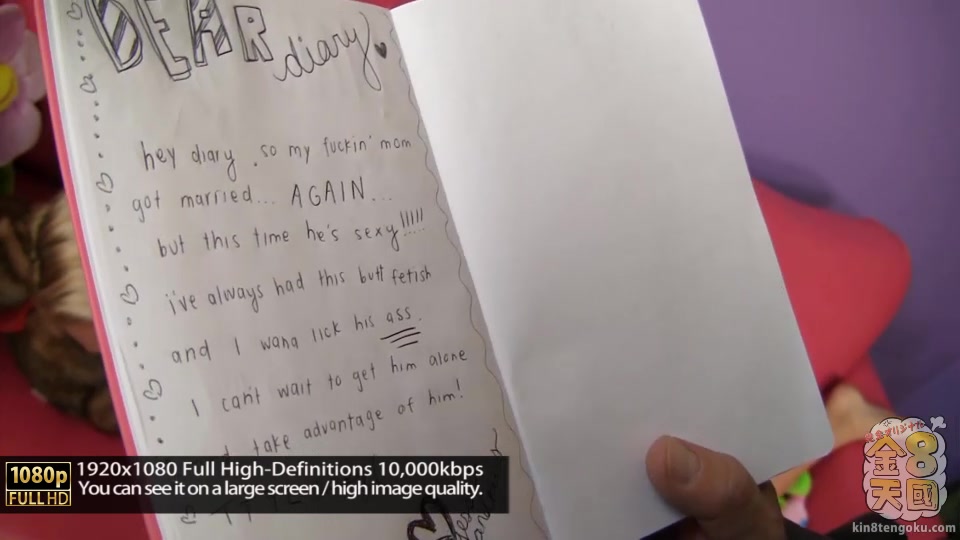 DEAR diary
hey diary. so my fuckin' mom
got married... AGAIN...
but this time he's sexy!!!!!
i've always had this butt fetish
and I wana lick his ass.
I can't wait to get him alone
take advantage of him!
1080p
FULL HD
1920x1080 Full High-Definitions 10,000kbps
You can see it on a large screen / high image quality.
金8天國
kin8tengoku.com